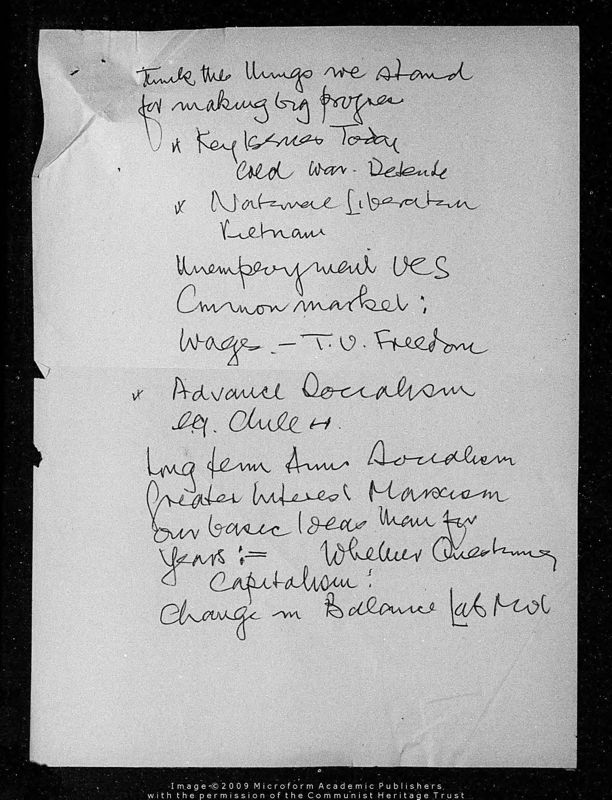 Think the things we stand
for making big progress
* Key Issues Today
Cold War. Detente
* National Liberation
Vietnam
Unemployment UCS
Common market:
Wages. - T.U. Freedom
* Advance Socialism
eg. Chile
Long term Aims Socialism
Greater Interest Marxism
our basic Ideas than for
Years := Whether Questioning
Capitalism:
Change in Balance Lab Mov
Image © 2009 Microform Academic Publishers
with the permission of the Communist Heritage Trust